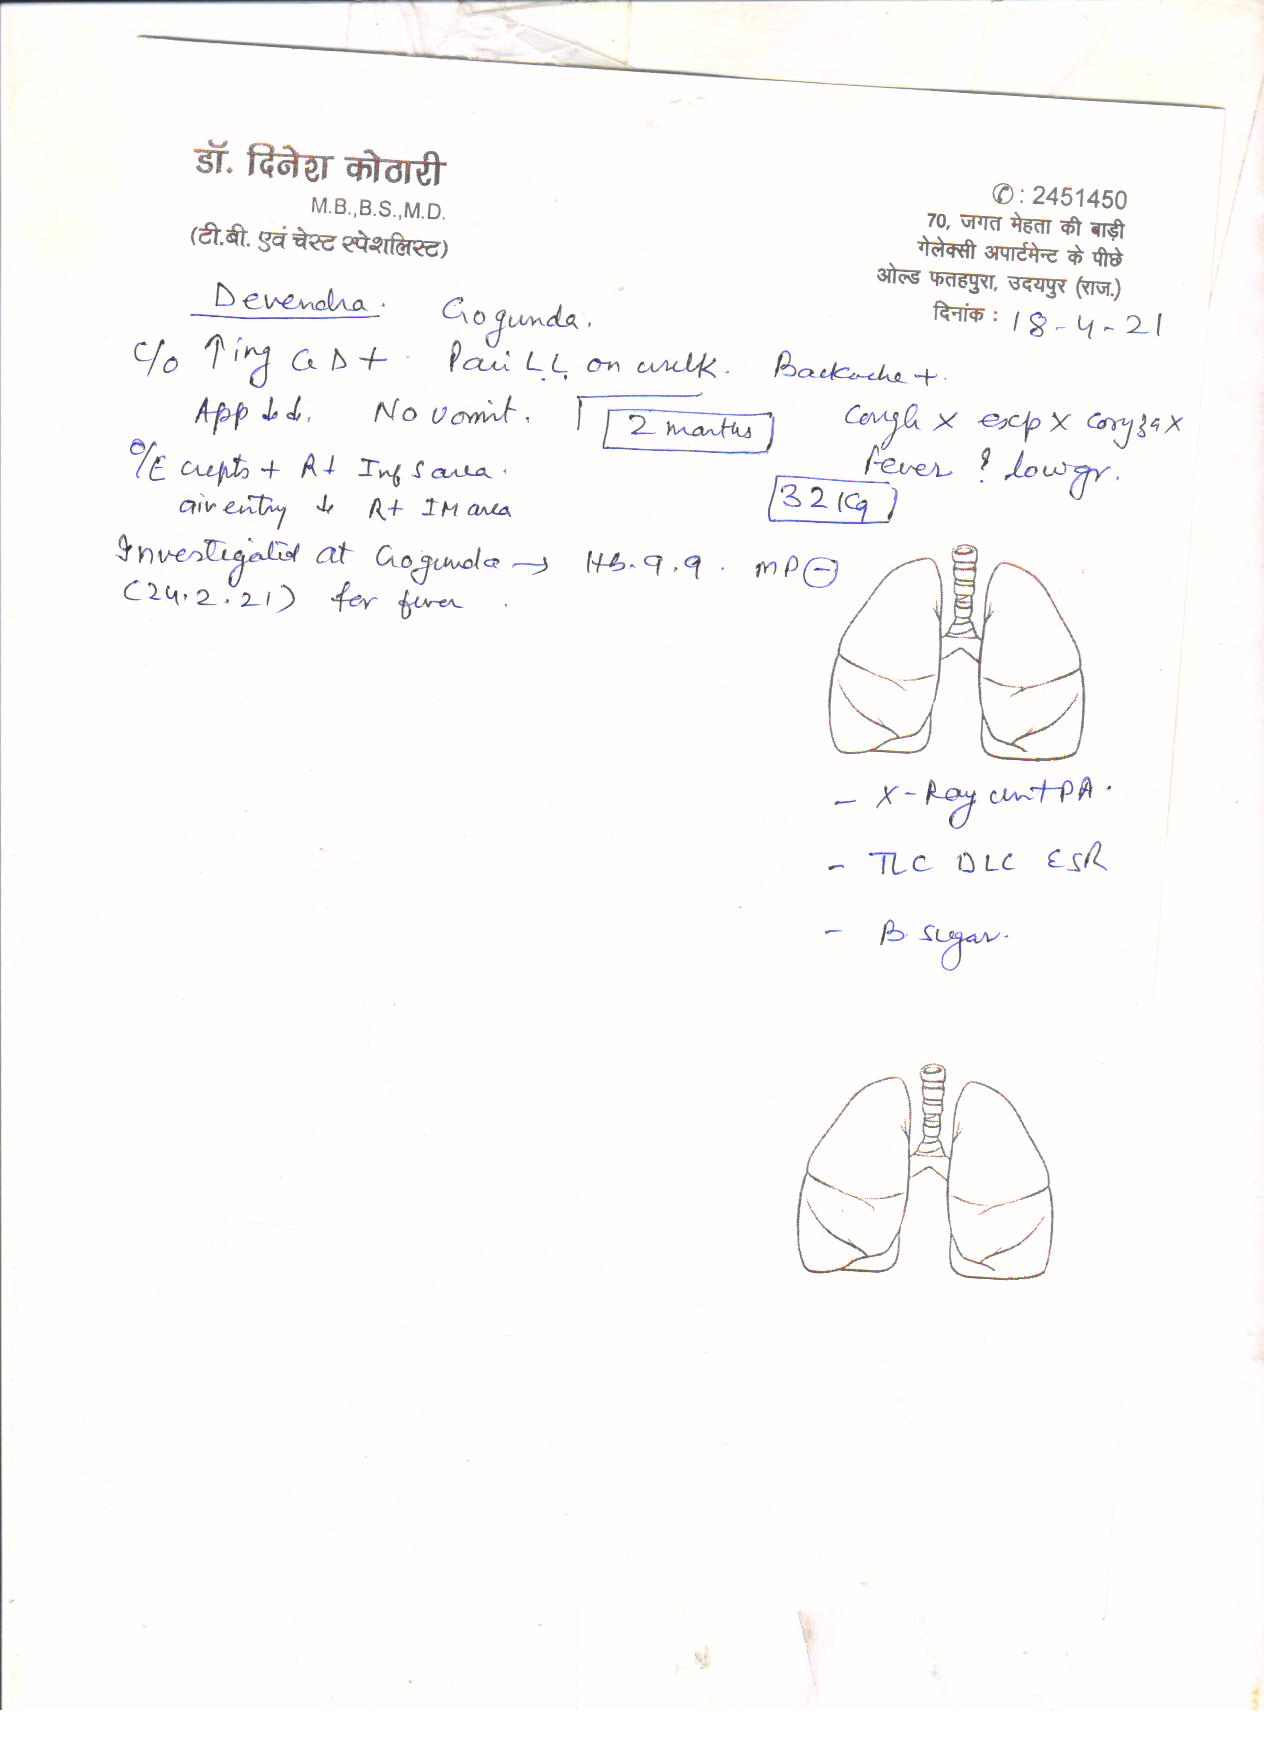 डॉ. दिनेश कोठारी
M.B.,B.S.,M.D.
(टी.बी. एवं चेस्ट स्पेशलिस्ट)
✆ : 2451450
70, जगत मेहता की बाड़ी
गेलेक्सी अपार्टमेन्ट के पीछे
ओल्ड फतहपुरा, उदयपुर (राज.)
दिनांक : 18-4-21
Devendra. Gogunda.
C/o ↑ing G D +. Pain L.L. on walk. Backache +.
App ↓d. No vomit. 2 months Cough x exp x coryza x
O/E crepts + Rt Inf S area. Fever ? low gr.
air entry ↓ Rt IM area 32 Kg
Investigated at Gogunda → Hb. 9.9. MP ⊖
(24.2.21) for fever.
- X-Ray chest PA.
- TLC DLC ESR
- B. Sugar.